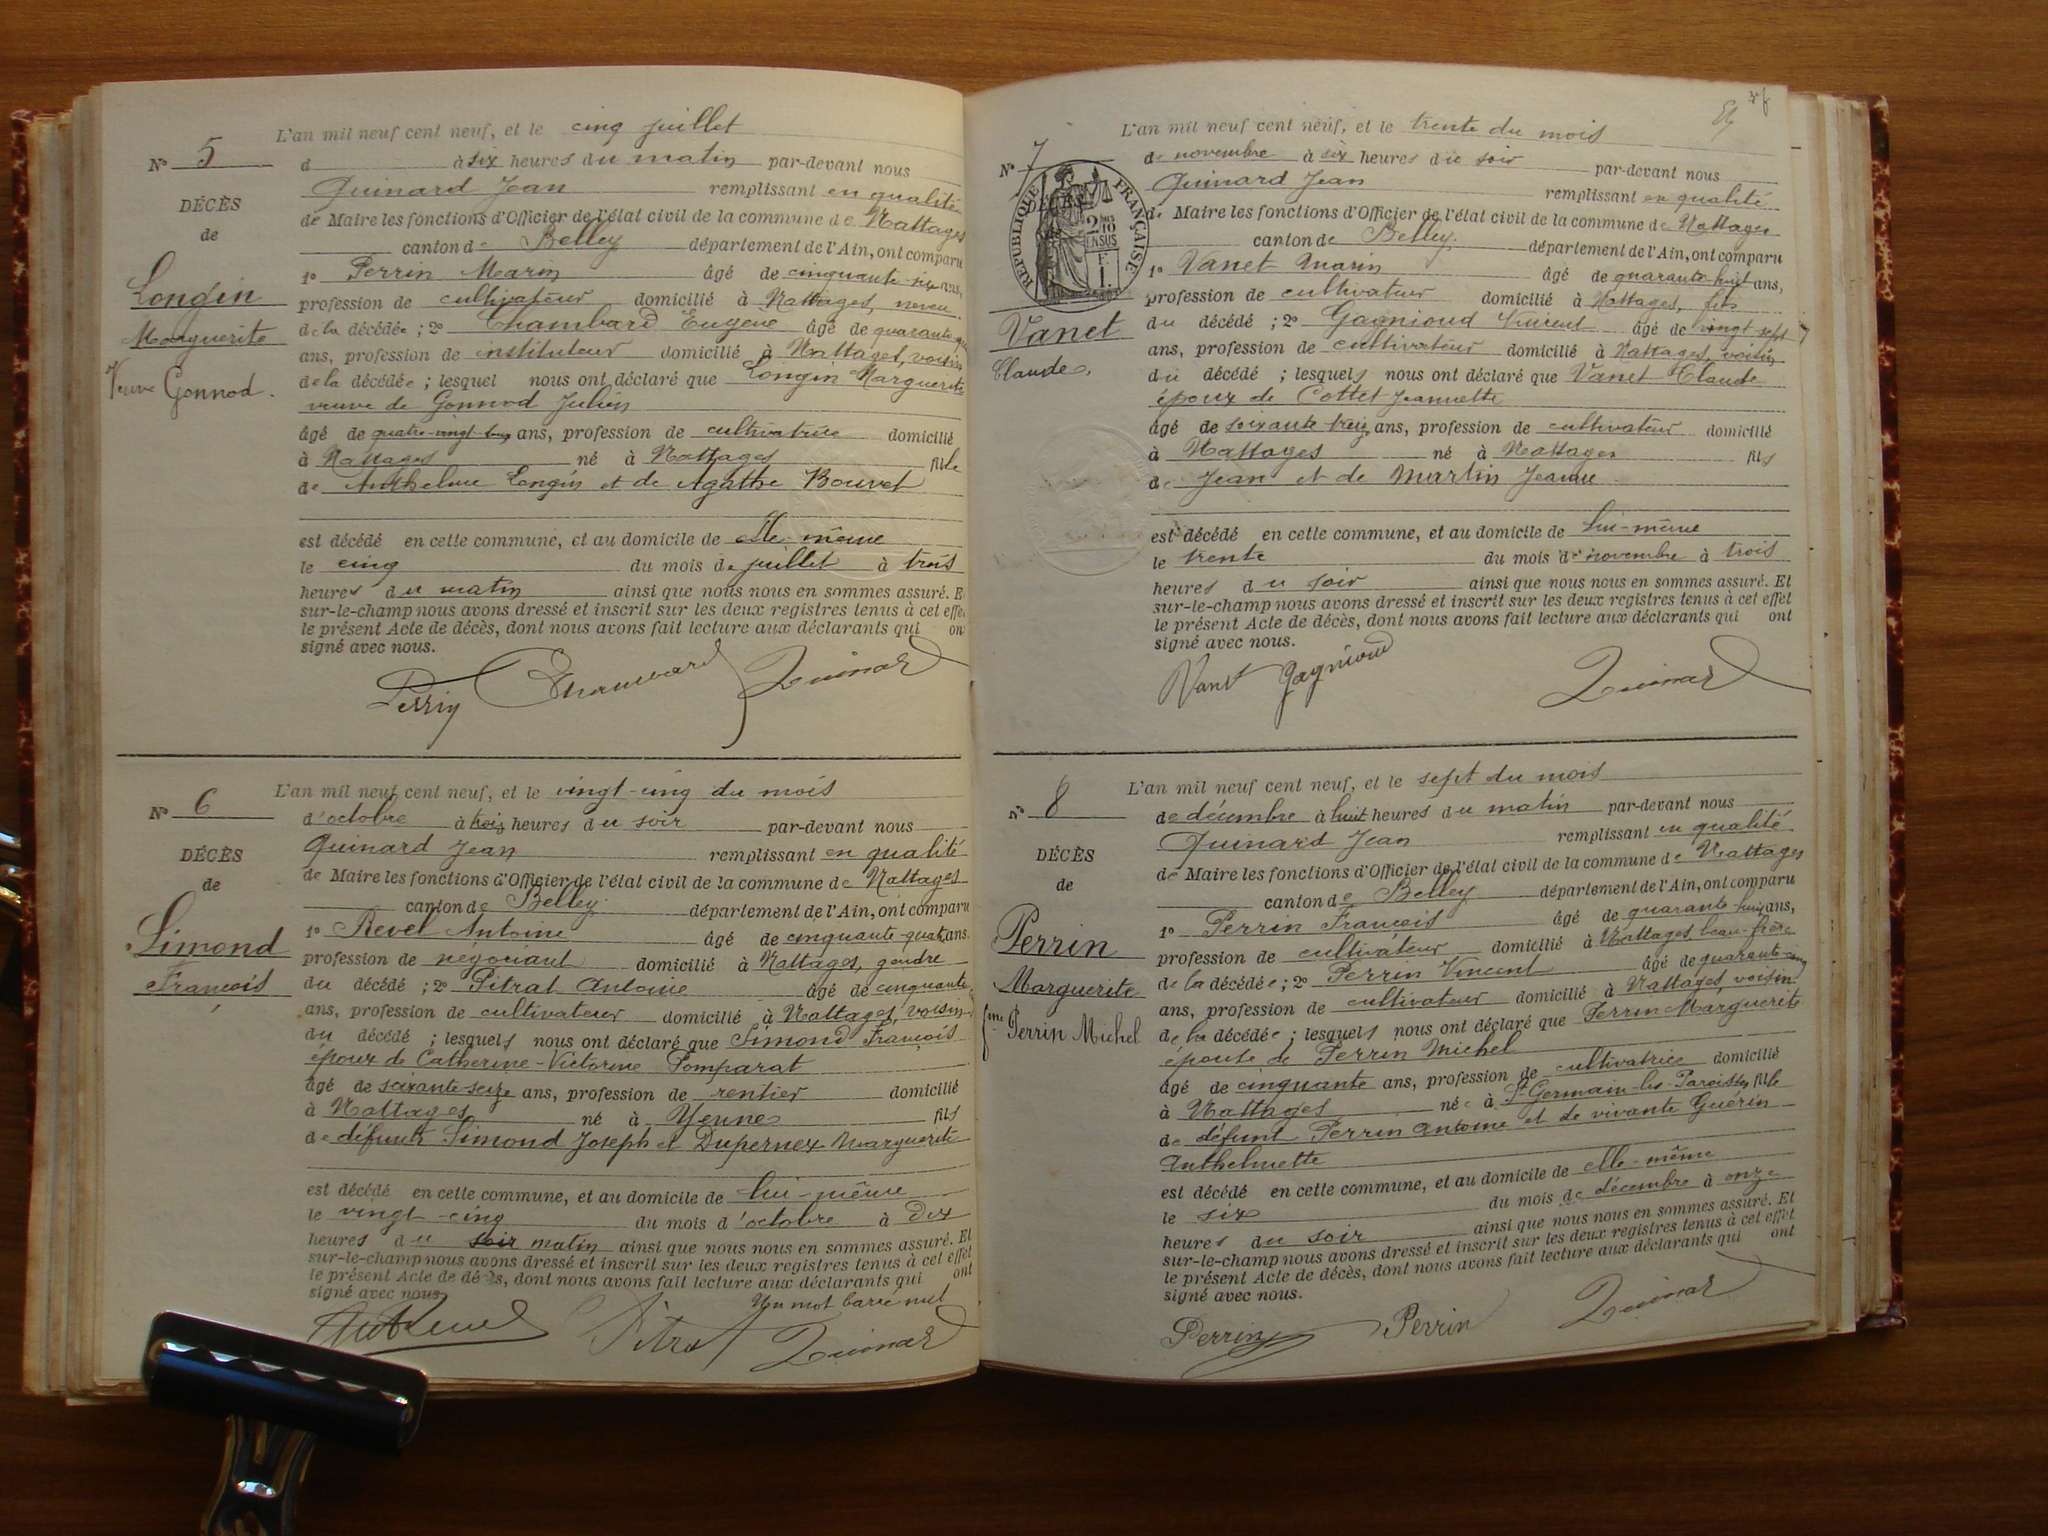 L'an mil neuf cent neuf, et le cinq juillet
N° 5
d à six heures du matin par-devant nous
Quinard Jean remplissant en qualité
DÉCÈS
de Maire les fonctions d'Officier de l'état civil de la commune de Nattages
de
canton de Belley département de l'Ain, ont comparu
Longin
1° Perrin Marin âgé de cinquante-six ans,
profession de cultivateur domicilié à Nattages, neveu
Marguerite
de la décédée ; 2° Chambard Eugène âgé de quarante
ans, profession de instituteur domicilié à Nattages, voisin
Veuve Gonnod.
de la décédée ; lesquel nous ont déclaré que Longin Marguerite
veuve de Gonnod Julien
âgé de quatre-vingt ans, profession de cultivatrice domicilié
à Nattages né à Nattages fille
de Anthelme Longin et de Agathe Bouvet
est décédé en cette commune, et au domicile de elle-même
le cinq du mois de juillet à trois
heures du matin ainsi que nous nous en sommes assuré. Et
sur-le-champ nous avons dressé et inscrit sur les deux registres tenus à cet effet
le présent Acte de décès, dont nous avons fait lecture aux déclarants qui ont
signé avec nous.
Perrin Chambard Quinard
L'an mil neuf cent neuf, et le vingt-cinq du mois
N° 6
d'octobre à trois heures du soir par-devant nous
Quinard Jean remplissant en qualité
DÉCÈS
de Maire les fonctions d'Officier de l'état civil de la commune de Nattages
de
canton de Belley département de l'Ain, ont comparu
Simond
1° Revel Antoine âgé de cinquante-quatre ans.
profession de négociant domicilié à Nattages, gendre
François
du décédé ; 2° Pitrat Antoine âgé de cinquante
ans, profession de cultivateur domicilié à Nattages, voisin
du décédé ; lesquels nous ont déclaré que Simond François
époux de Catherine-Victorine Pomparat
âgé de soixante-seize ans, profession de rentier domicilié
à Nattages né à Yenne fils
de défunts Simond Joseph et Dupernex Marguerite
est décédé en cette commune, et au domicile de lui-même
le vingt-cinq du mois d'octobre à dix
heures du soir matin ainsi que nous nous en sommes assuré. Et
sur-le-champ nous avons dressé et inscrit sur les deux registres tenus à cet effet
le présent Acte de décès, dont nous avons fait lecture aux déclarants qui ont
signé avec nous. Un mot barré nul
Ant Revel Pitrat Quinard
L'an mil neuf cent neuf, et le trente du mois
N° 7
de novembre à six heures du soir par-devant nous
Quinard Jean remplissant en qualité
RÉPUBLIQUE FRANÇAISE
2/10 EN SUS
de Maire les fonctions d'Officier de l'état civil de la commune de Nattages
canton de Belley département de l'Ain, ont comparu
1° Vanet Marin âgé de quarante-huit ans,
profession de cultivateur domicilié à Nattages, fils
Vanet
du décédé ; 2° Gagnioud Vincent âgé de vingt-sept
ans, profession de cultivateur domicilié à Nattages, voisin
Claude,
du décédé ; lesquels nous ont déclaré que Vanet Claude
époux de Cottet Jeannette
âgé de soixante-treize ans, profession de cultivateur domicilié
à Nattages né à Nattages fils
de Jean et de Martin Jeanne
est décédé en cette commune, et au domicile de lui-même
le trente du mois de novembre à trois
heures du soir ainsi que nous nous en sommes assuré. Et
sur-le-champ nous avons dressé et inscrit sur les deux registres tenus à cet effet
le présent Acte de décès, dont nous avons fait lecture aux déclarants qui ont
signé avec nous.
Vanet Gagnioud Quinard
L'an mil neuf cent neuf, et le sept du mois
N° 8
de décembre à huit heures du matin par-devant nous
Quinard Jean remplissant en qualité
DÉCÈS
de Maire les fonctions d'Officier de l'état civil de la commune de Nattages
de
canton de Belley département de l'Ain, ont comparu
Perrin
1° Perrin François âgé de quarante-huit ans,
profession de cultivateur domicilié à Nattages, beau-frère
Marguerite
de la décédée ; 2° Perrin Vincent âgé de quarante-cinq
ans, profession de cultivateur domicilié à Nattages, voisin
fme Perrin Michel
de la décédée ; lesquels nous ont déclaré que Perrin Marguerite
épouse de Perrin Michel
âgé de cinquante ans, profession de cultivatrice domicilié
à Nattages née à St-Germain-les-Paroisses fille
de défunt Perrin Antoine et de vivante Guérin
Anthelmette
est décédé en cette commune, et au domicile de elle-même
le six du mois de décembre à onze
heures du soir ainsi que nous nous en sommes assuré. Et
sur-le-champ nous avons dressé et inscrit sur les deux registres tenus à cet effet
le présent Acte de décès, dont nous avons fait lecture aux déclarants qui ont
signé avec nous.
Perrin Perrin Quinard